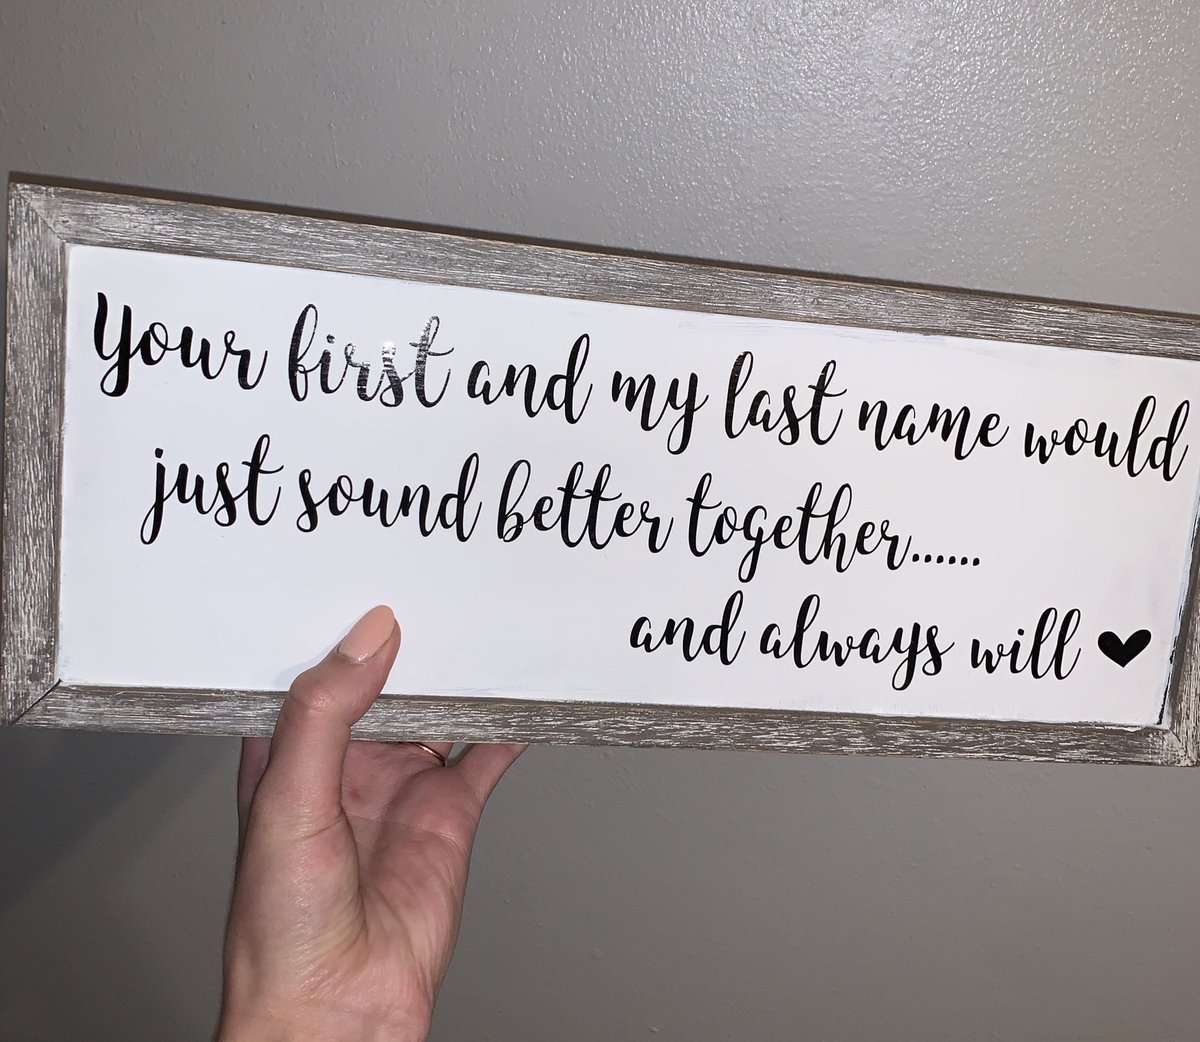 Your first and my last name would
just sound better together......
and always will ♥